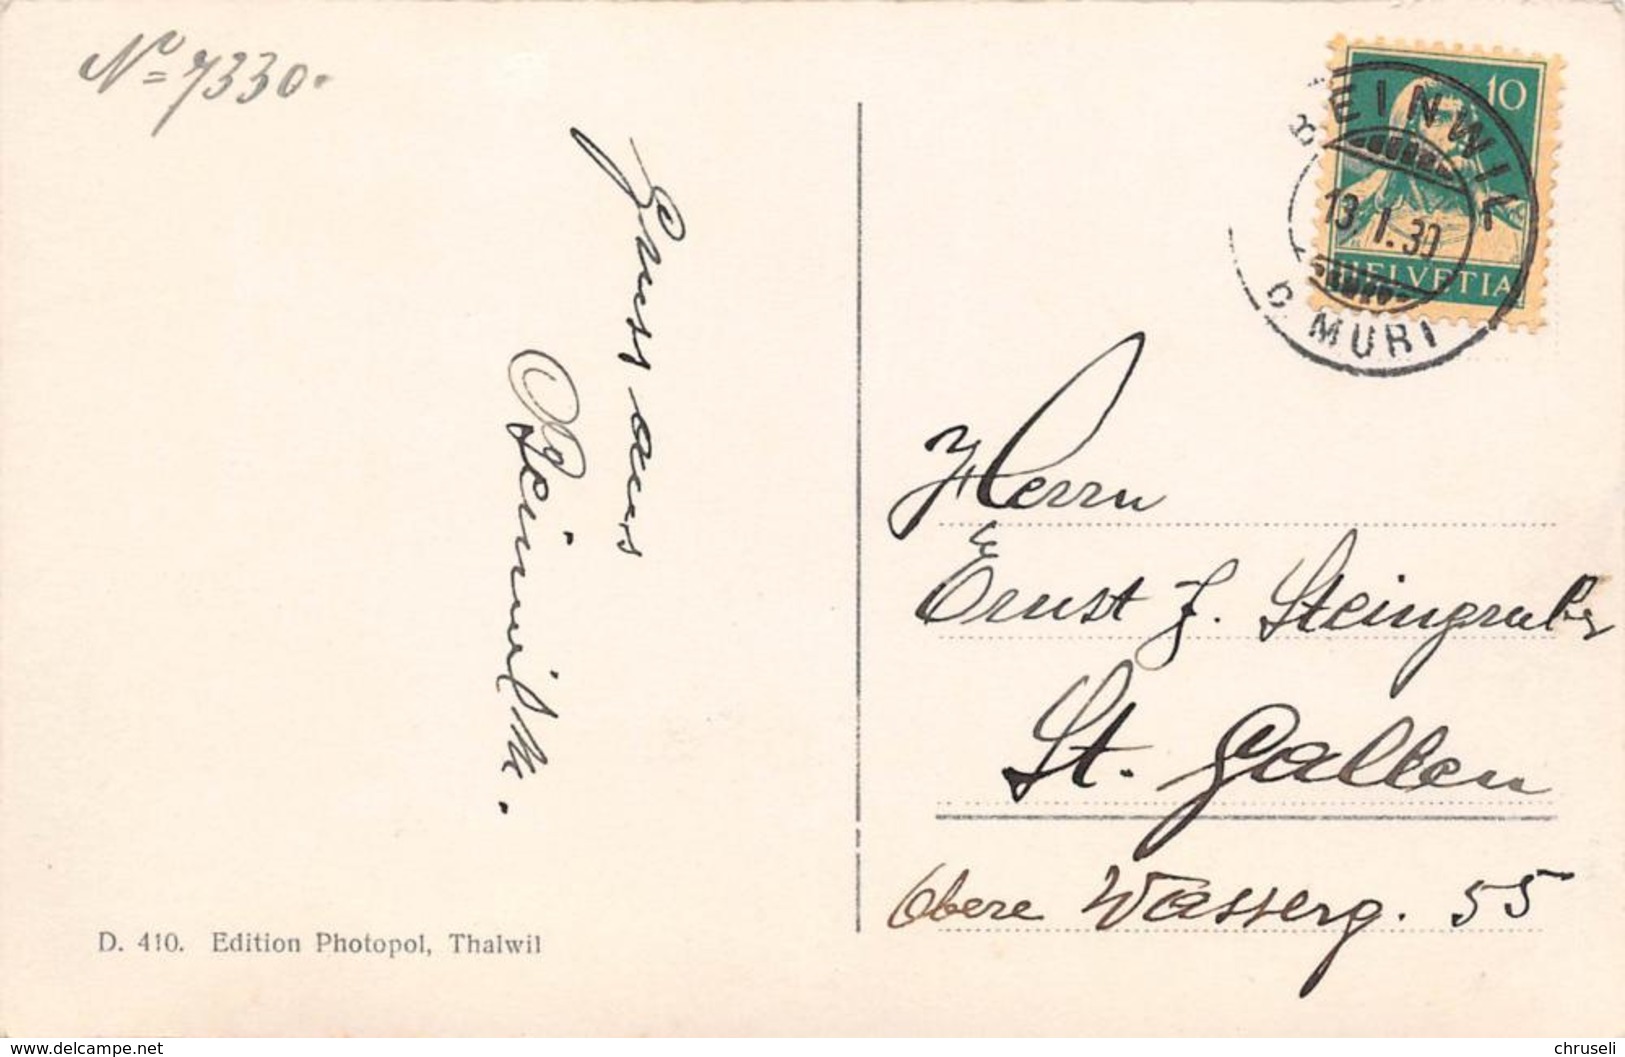 No 7330.
Gruss aus
Beinwil
10
HELVETIA
BEINWIL
13. I. 30
b. MURI
Herrn
Ernst J. Steingruber
St. Gallen
Obere Wasserg. 55
D. 410. Edition Photopol, Thalwil
www.delcampe.net
chruseli